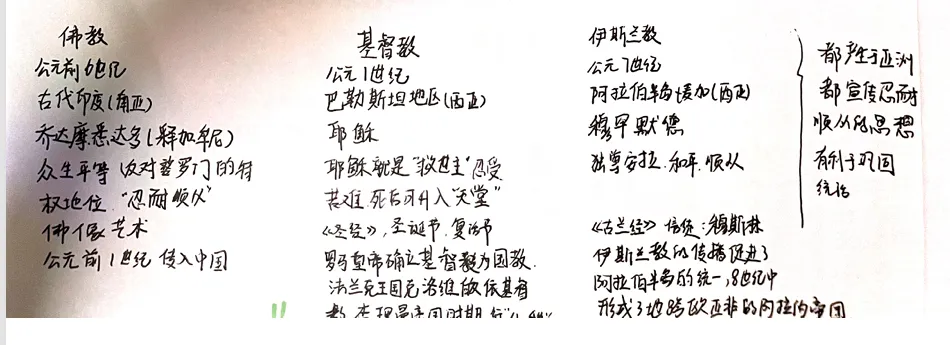 佛教
公元前6世纪
古代印度(南亚)
乔达摩悉达多(释迦牟尼)
众生平等 反对婆罗门的特
权地位 "忍耐顺从"
佛像艺术
公元前1世纪 传入中国
基督教
公元1世纪
巴勒斯坦地区(西亚)
耶稣
耶稣就是"救世主" 忍受
苦难,死后可升入"天堂"
《圣经》,圣诞节,复活节
罗马皇帝确立基督教为国教.
法兰克王国克洛维皈依基督
教,查理曼帝国时期
伊斯兰教
公元7世纪
阿拉伯半岛麦加(西亚)
穆罕默德
独尊安拉、和平、顺从
《古兰经》 信徒:穆斯林
伊斯兰教的传播促进了
阿拉伯半岛的统一,8世纪中
形成了地跨欧亚非的阿拉伯帝国
都产生于亚洲
都宣传忍耐
顺从的思想
有利于巩固
统治